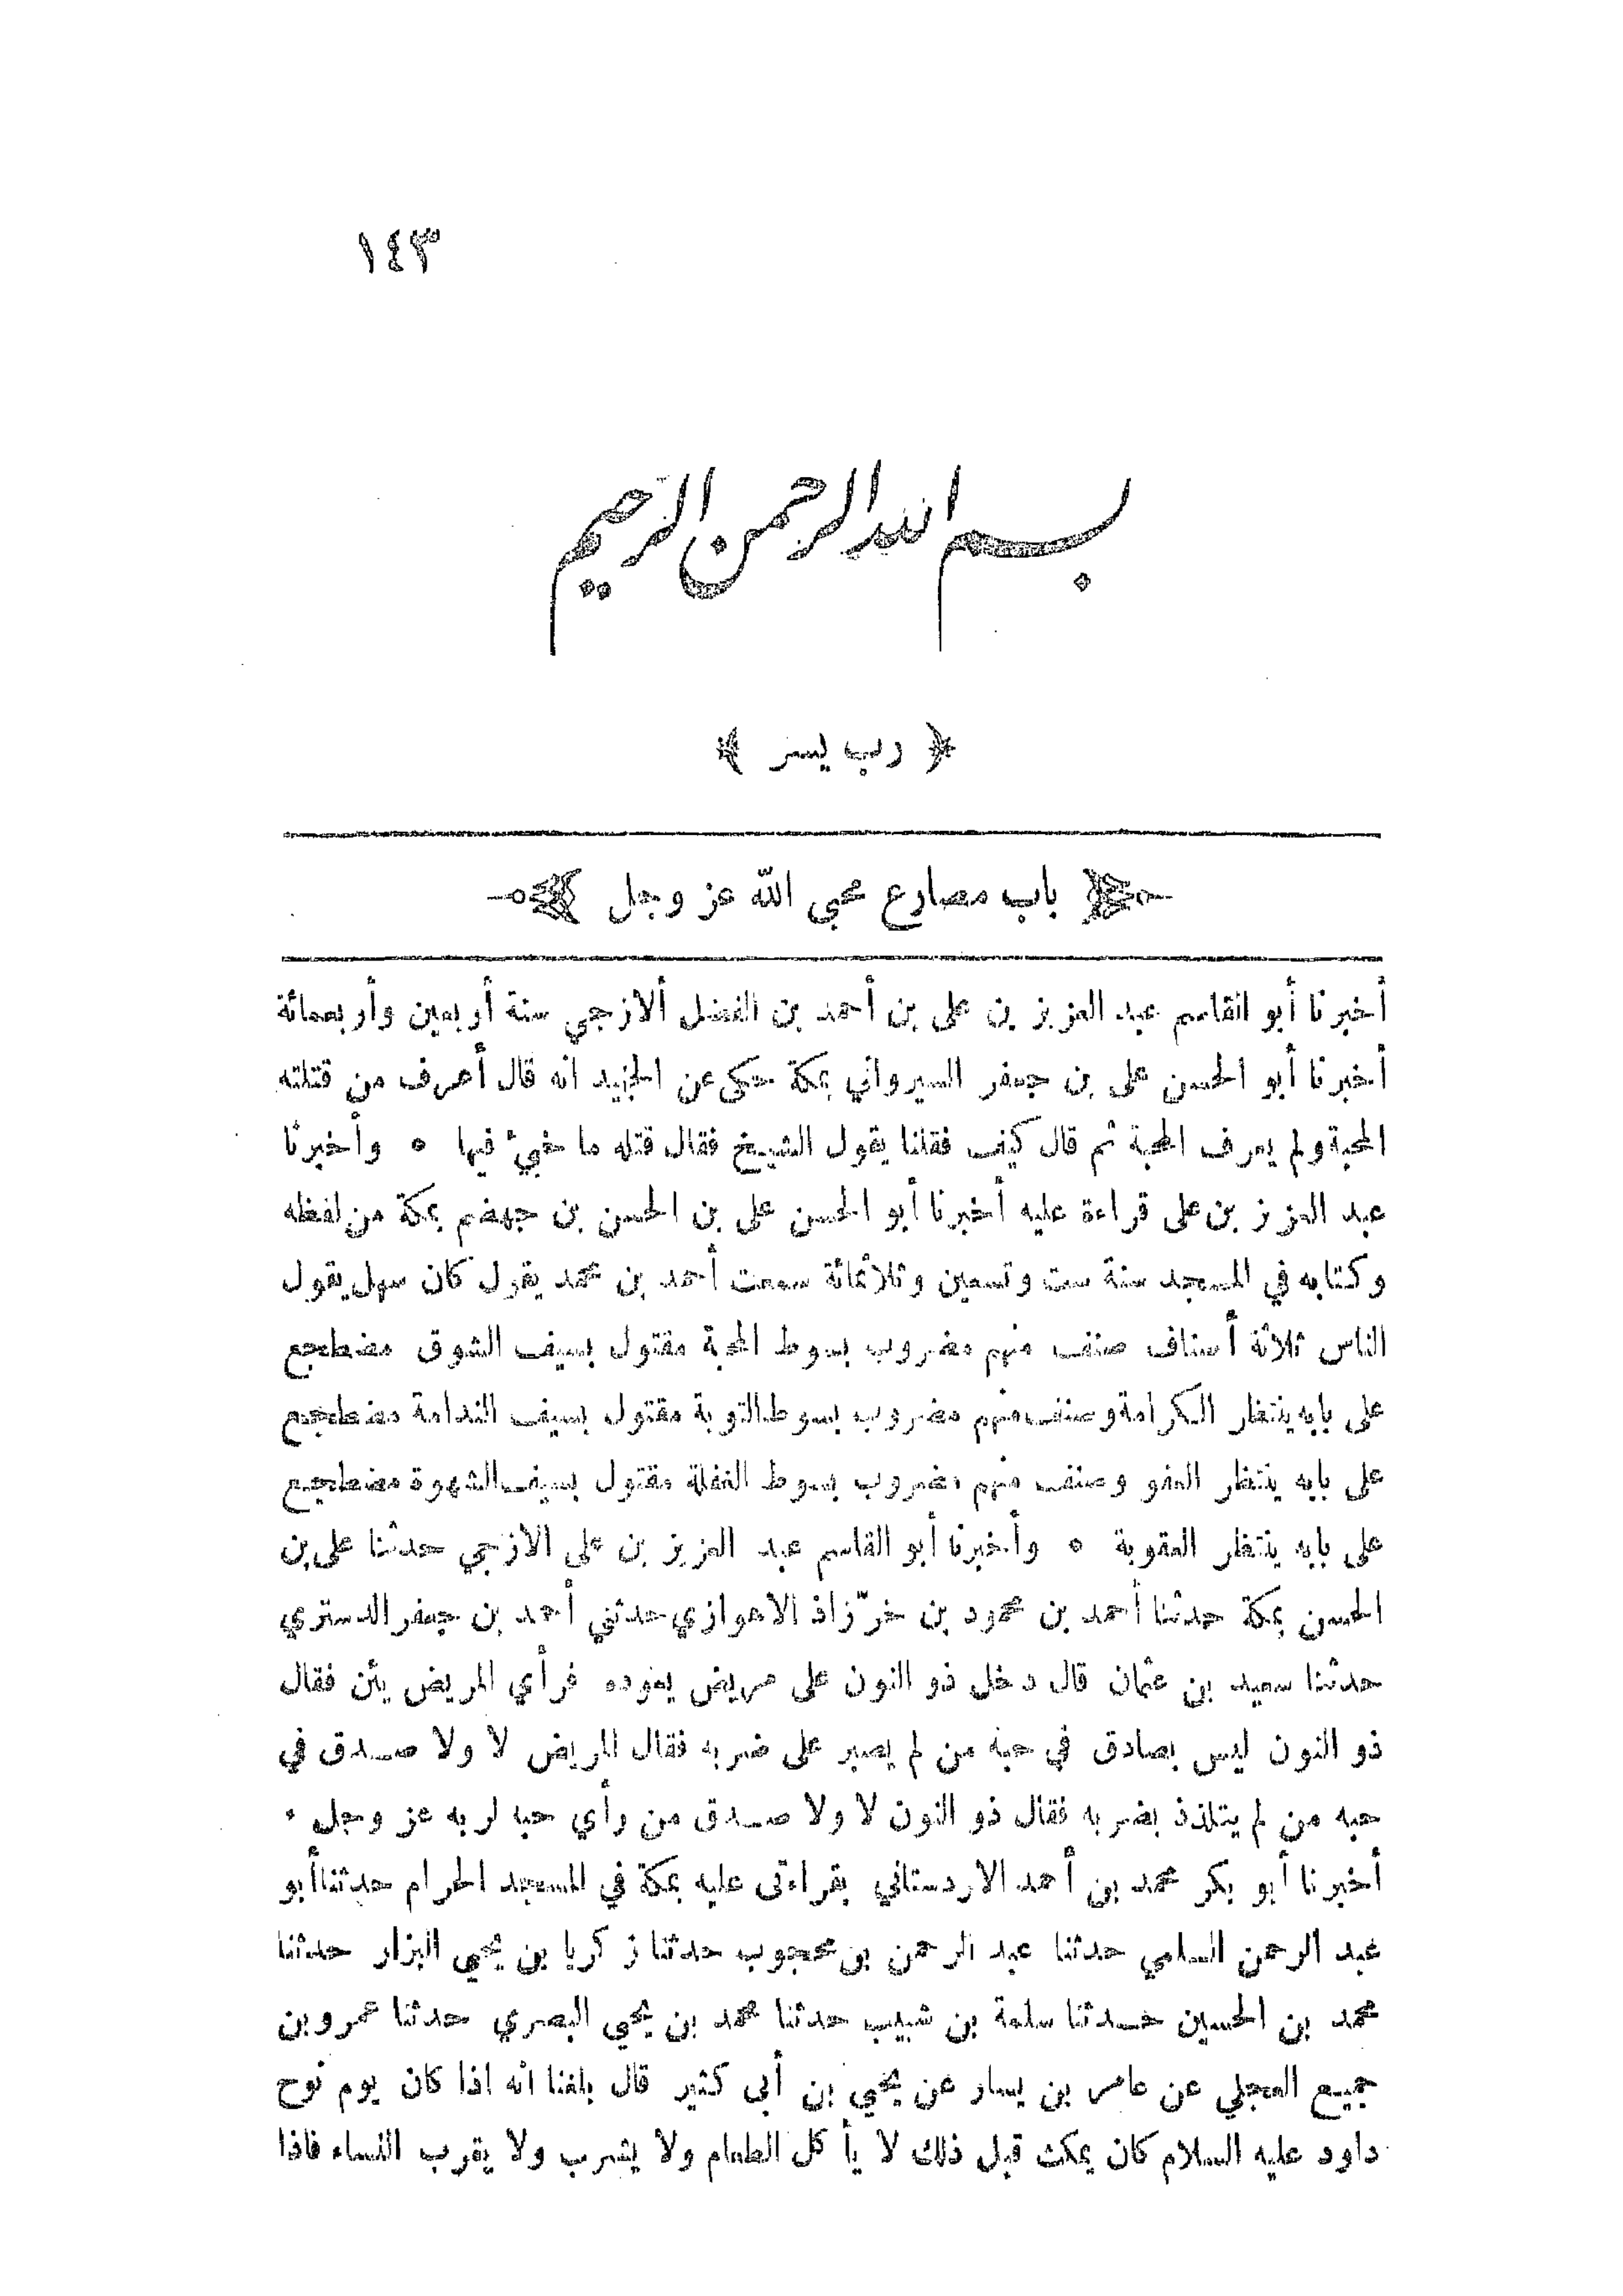 ١٤٣
بسم الله الرحمن الرحيم
﴿ رب يسر ﴾
﴿ باب مصارع محبي الله عز وجل ﴾
أخبرنا أبو القاسم عبد العزيز بن على بن أحمد بن الفضل ألازجي سنة أربعين وأربعمائة
أخبرنا أبو الحسن على بن جعفر السيرواني بمكة حكى عن الجنيد انه قال أعرف من قتلته
المحبة ولم يعرف المحبة ثم قال كيف فقلنا يقول الشيخ فقال قتله ما خبئ فيها ٥ وأخبرنا
عبد العزيز بن على قراءة عليه أخبرنا أبو الحسن على بن الحسن بن جهضم بمكة من لفظه
وكتابه في المسجد سنة ست وتسعين وثلاثمائة سمعت أحمد بن محمد يقول كان سهل يقول
الناس ثلاثة أصناف صنف منهم مضروب بسوط المحبة مقتول بسيف الشوق مضطجع
على بابه ينتظر الكرامة وصنف منهم مضروب بسوط التوبة مقتول بسيف الندامة مضطجع
على بابه ينتظر العفو وصنف منهم مضروب بسوط الغفلة مقتول بسيف الشهوة مضطجع
على بابه ينتظر العقوبة ٥ وأخبرنا أبو القاسم عبد العزيز بن على الازجي حدثنا على بن
الحسن بمكة حدثنا أحمد بن محمود بن خرّزاذ الاهوازي حدثني أحمد بن جعفر الدستري
حدثنا سعيد بن عثمان قال دخل ذو النون على مريض يعوده فرأي المريض يئن فقال
ذو النون ليس بصادق في حبه من لم يصبر على ضربه فقال المريض لا ولا صدق في
حبه من لم يتلذذ بضربه فقال ذو النون لا ولا صدق من رأي حبه لربه عز وجل ٠
أخبرنا أبو بكر محمد بن أحمد الاردستاني بقراءتى عليه بمكة في المسجد الحرام حدثنا أبو
عبد الرحمن السلمي حدثنا عبد الرحمن بن محجوب حدثنا زكريا بن يحيي البزار حدثنا
محمد بن الحسين حدثنا سلمة بن شبيب حدثنا محمد بن يحيي البصري حدثنا عمرو بن
جميع العجلي عن عامر بن يسار عن يحيي بن أبى كثير قال بلغنا انه اذا كان يوم نوح
داود عليه السلام كان يمكث قبل ذلك لا يأكل الطعام ولا يشرب ولا يقرب النساء فاذا